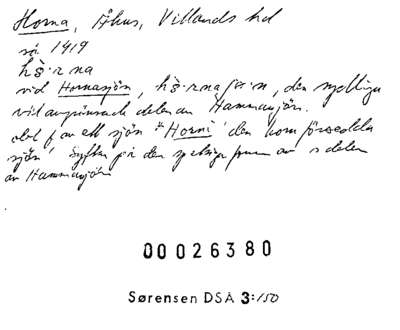 Horna, Åhus, Villands hd
så 1419
hs̀·rna
vid Hornasjön, hs̀·rnaʃö·n, den sydliga
vid avgränsade delen av Hammarsjön.
obl f av ett sjön "Horni" 'den hornförsedda
sjön'. Syftar på den spetsiga formen av s delen
av Hammarsjön
00026380
Sørensen DSA 3:150